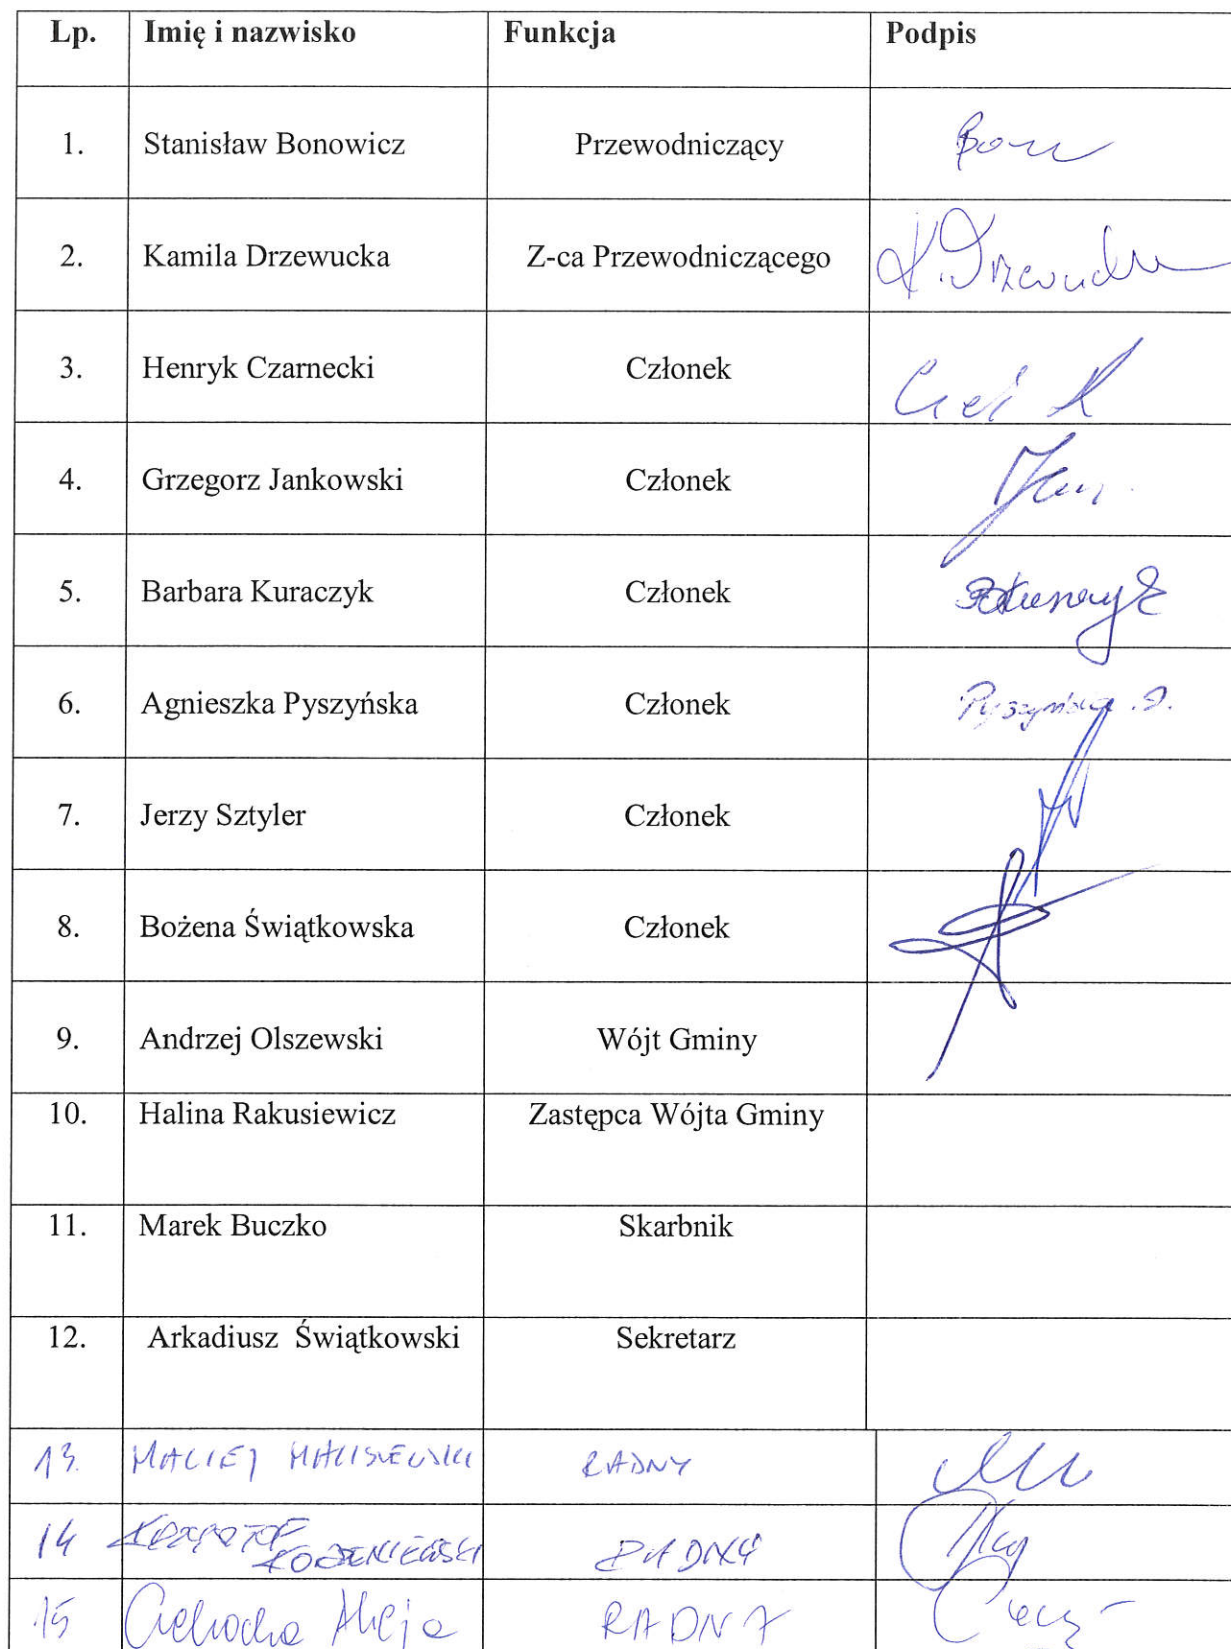 Lp. Imię i nazwisko Funkcja Podpis
1. Stanisław Bonowicz Przewodniczący
2. Kamila Drzewucka Z-ca Przewodniczącego
3. Henryk Czarnecki Członek
4. Grzegorz Jankowski Członek
5. Barbara Kuraczyk Członek
6. Agnieszka Pyszyńska Członek
7. Jerzy Sztyler Członek
8. Bożena Świątkowska Członek
9. Andrzej Olszewski Wójt Gminy
10. Halina Rakusiewicz Zastępca Wójta Gminy
11. Marek Buczko Skarbnik
12. Arkadiusz Świątkowski Sekretarz
13. MACIEJ RADNY
14 RADNY
15 Alicja RADNA